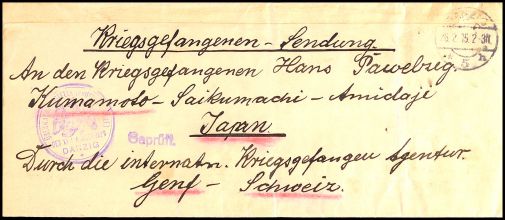 Kriegsgefangenen-Sendung.
An den Kriegsgefangenen Hans Pawelzig.
Kumamoto-Saikumachi-Amidaje
Japan.
Geprüft.
DANZIG
Durch die internatn. Kriegsgefangen Agentur.
Genf - Schweiz.